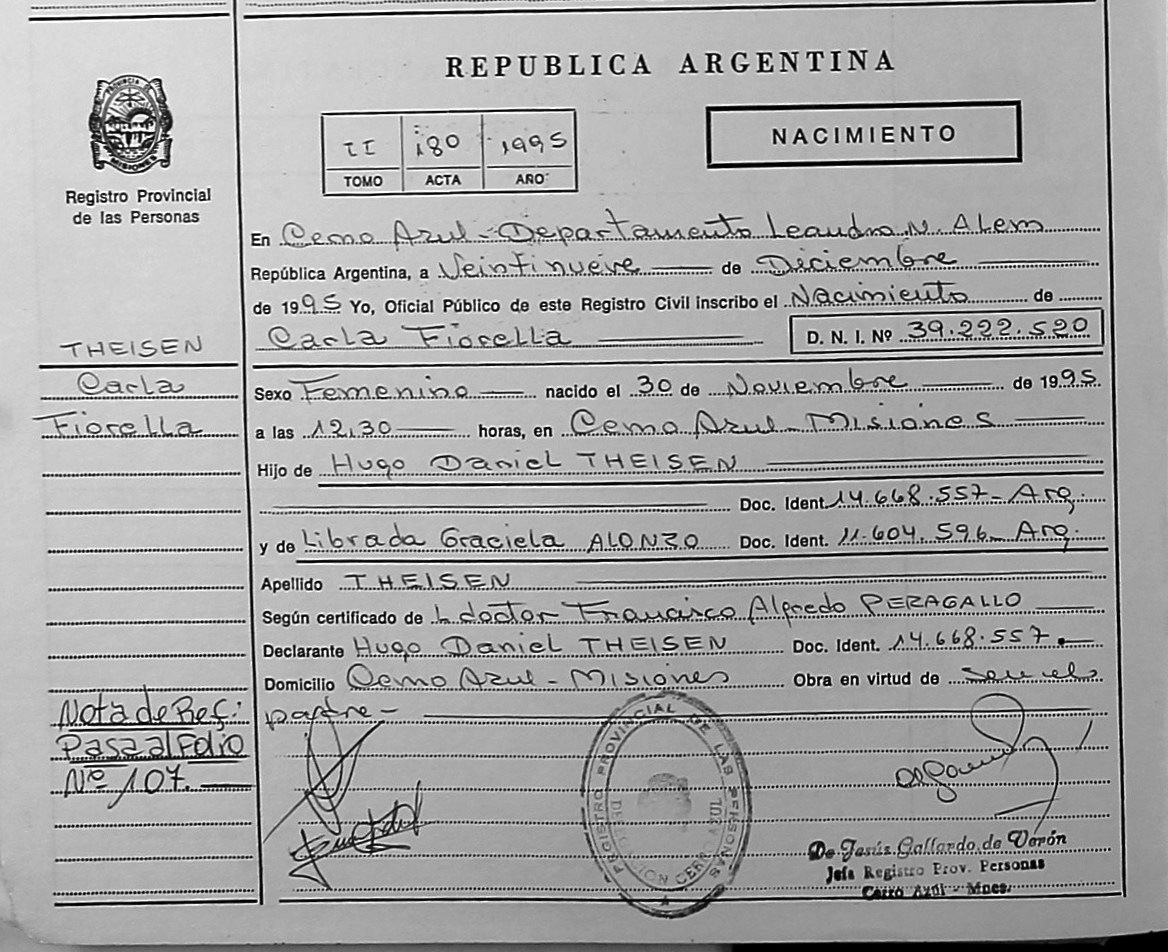 REPUBLICA ARGENTINA
PROVINCIA DE MISIONES
II 180 1995
TOMO ACTA AÑO
NACIMIENTO
Registro Provincial
de las Personas
En Cerro Azul - Departamento Leandro N. Alem
República Argentina, a Veintinueve de Diciembre
de 1995 Yo, Oficial Público de este Registro Civil inscribo el Nacimiento de
Carla Fiorella D. N. I. Nº 39.222.520
THEISEN
Carla
Fiorella
Sexo Femenino nacido el 30 de Noviembre de 1995.
a las 12,30 horas, en Cerro Azul - Misiones
Hijo de Hugo Daniel THEISEN
Doc. Ident. 14.668.557 - Arg.
y de Librada Graciela ALONZO Doc. Ident. 11.604.596 - Arg.
Apellido THEISEN
Según certificado de L doctor Francisco Alfredo PERAGALLO
Declarante Hugo Daniel THEISEN Doc. Ident. 14.668.557.-
Domicilio Cerro Azul - Misiones Obra en virtud de ser el
padre -
Nota de Ref:
Pasa al Folio
Nº 107.
REGISTRO PROVINCIAL DE LAS PERSONAS
DELEGACION CERRO AZUL
De Jesús Gallardo de Verón
Jefa Registro Prov. Personas
Cerro Azul - Mnes.